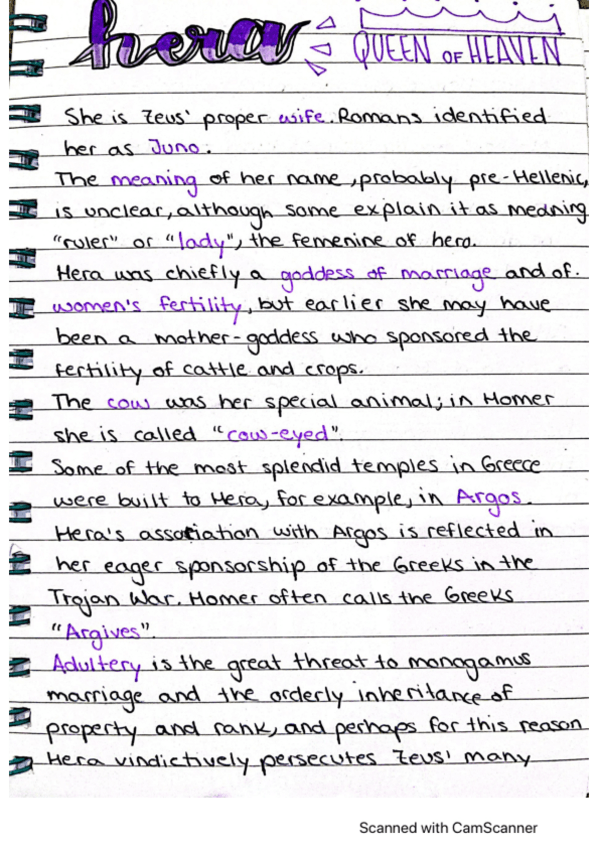 hera QUEEN OF HEAVEN
She is Zeus' proper wife. Romans identified
her as Juno.
The meaning of her name, probably pre-Hellenic,
is unclear, although some explain it as meaning
"ruler" or "lady", the femenine of hero.
Hera was chiefly a goddess of marriage and of.
women's fertility, but earlier she may have
been a mother-goddess who sponsored the
fertility of cattle and crops.
The cow was her special animal; in Homer
she is called "cow-eyed".
Some of the most splendid temples in Greece
were built to Hera, for example, in Argos.
Hera's association with Argos is reflected in
her eager sponsorship of the Greeks in the
Trojan War. Homer often calls the Greeks
"Argives".
Adultery is the great threat to monogamus
marriage and the orderly inheritance of
property and rank, and perhaps for this reason
Hera vindictively persecutes Zeus' many
Scanned with CamScanner